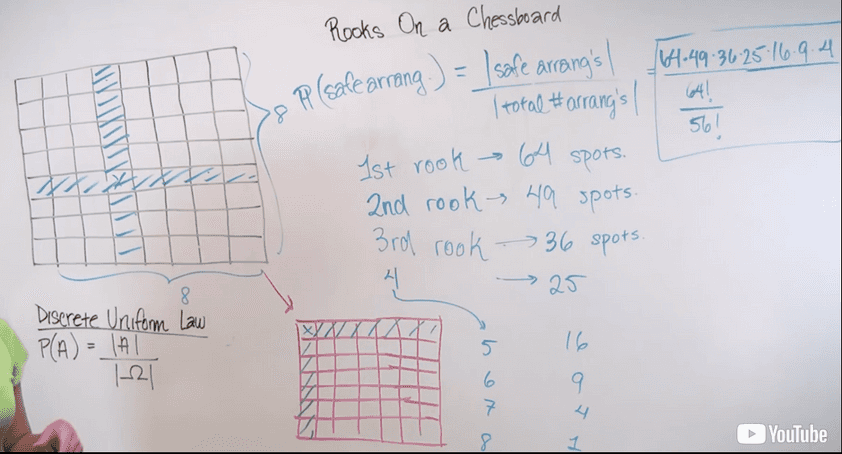 Rooks On a Chessboard
8
P(safe arrang.) = |safe arrang's| / |total # arrang's| = 64·49·36·25·16·9·4 / 64!/56!
1st rook → 64 spots.
2nd rook → 49 spots.
3rd rook → 36 spots.
4 → 25
8
Discrete Uniform Law
P(A) = |A| / |Ω|
x
x
5 16
6 9
7 4
8 1
YouTube